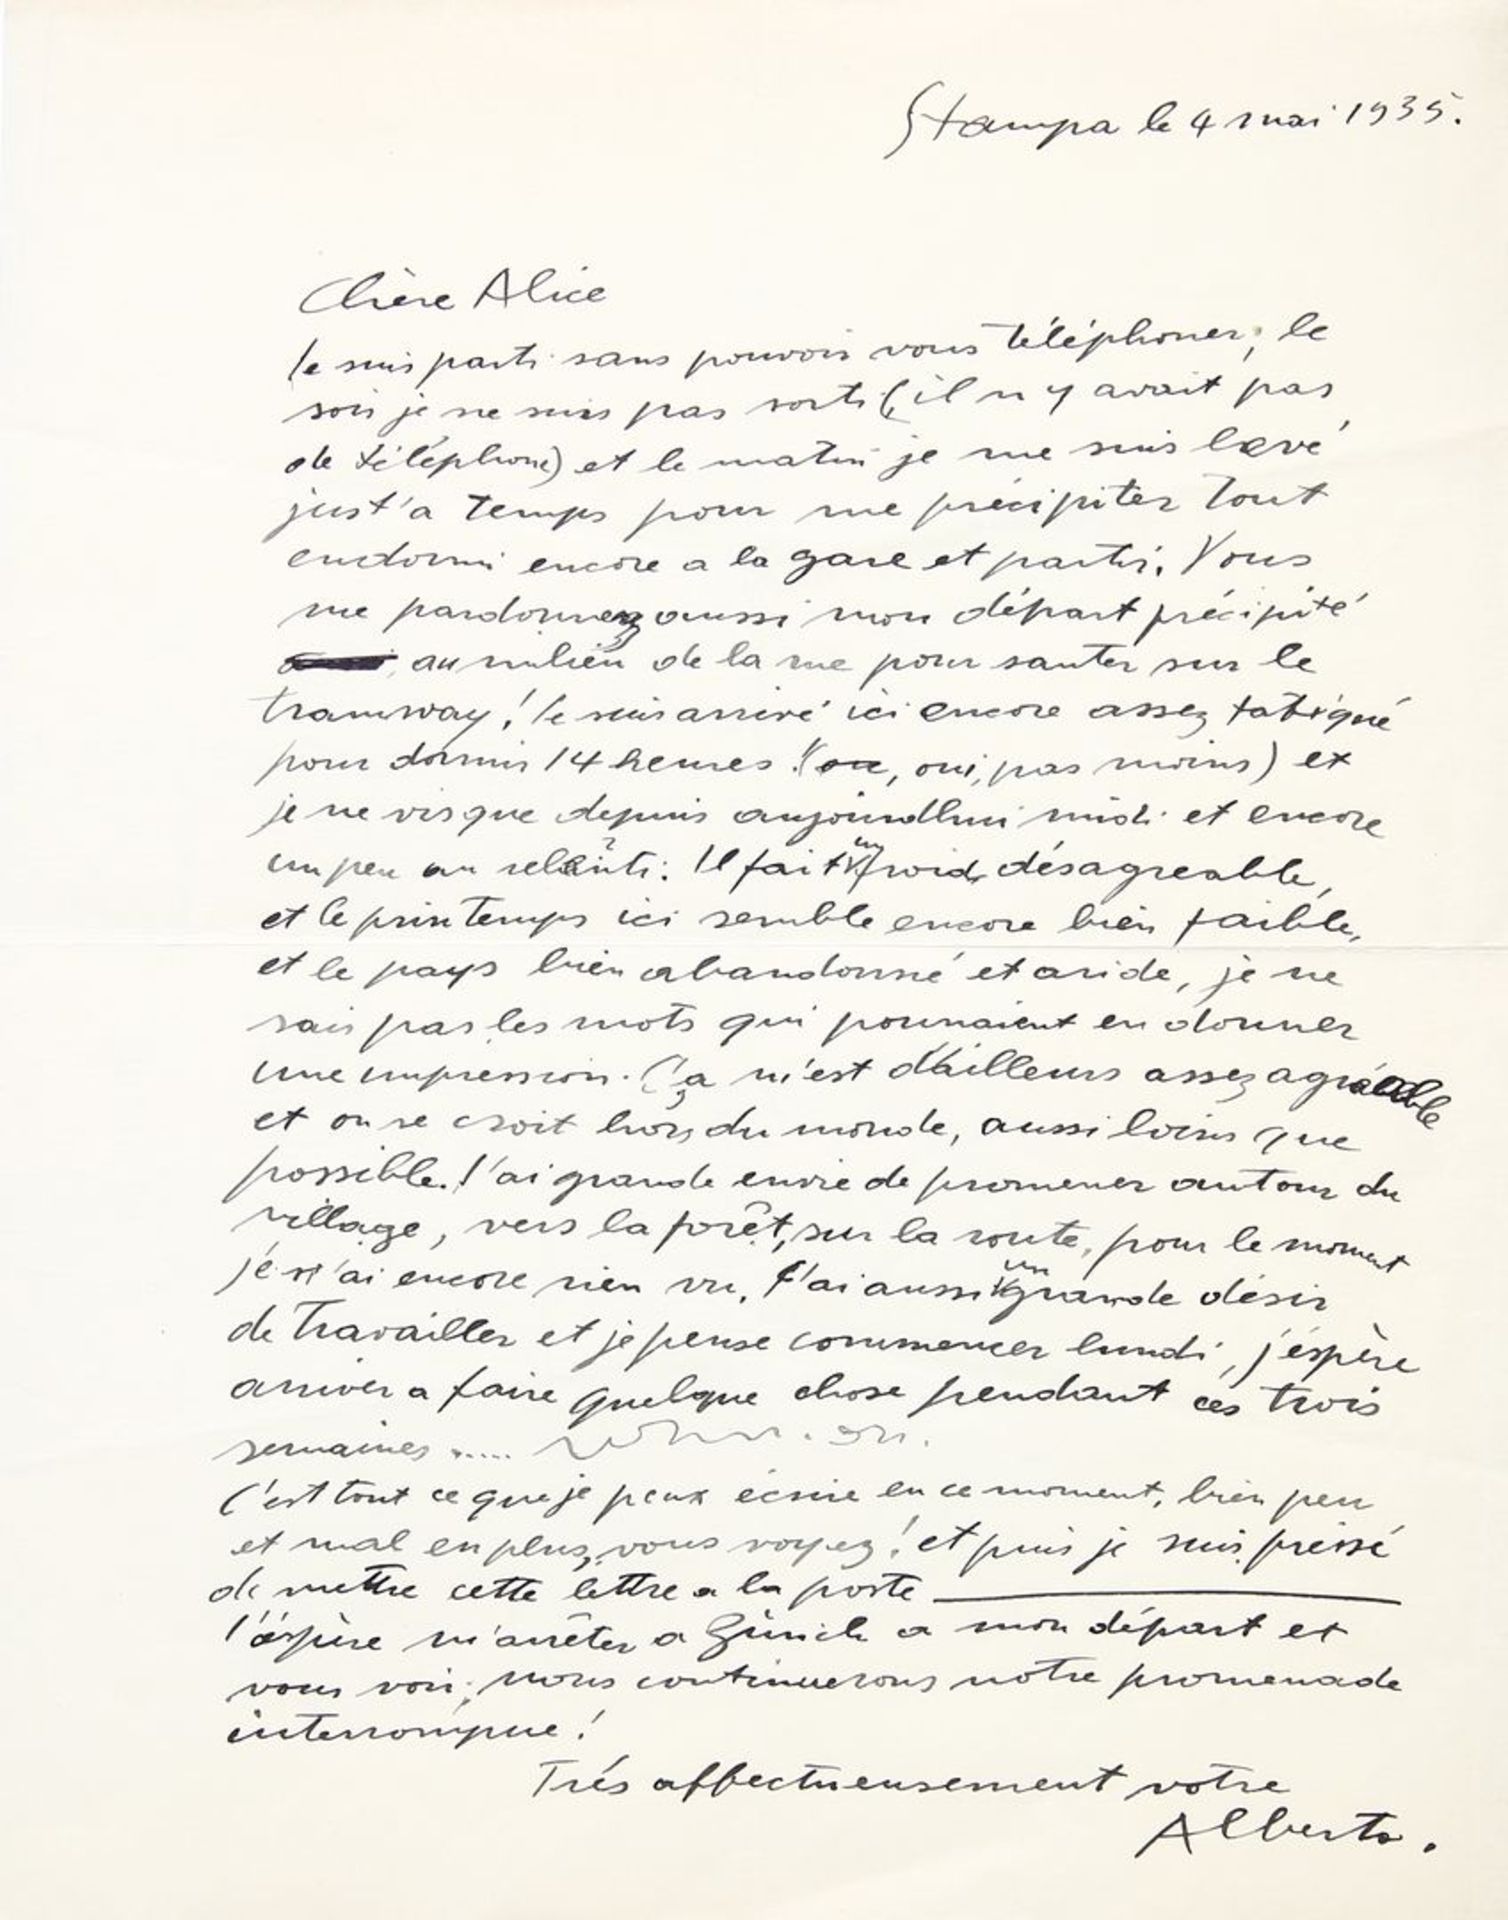 Stampa le 4 mai 1935.
Chère Alice
Je suis parti sans pouvoir vous téléphoner, le
soir je ne suis pas sorti (il n y avait pas
de téléphone) et le matin je me suis levé
just'a temps pour me précipiter tout
endormi encore a la gare et partir. Vous
me pardonnez aussi mon départ précipité
au milieu de la rue pour sauter sur le
tramway! Je suis arrivé ici encore assez fatigué
pour dormir 14 heures! (ou, oui, pas moins) et
je ne vis que depuis aujourdhui midi et encore
un peu au relanti. Il fait un froid désagreable,
et le printemps ici semble encore bien faible,
et le pays bien abandonné et aride, je ne
sais pas les mots qui pourraient en donner
une impression. Ça m'est d'ailleurs assez agréable
et on se croit hors du monde, aussi loins que
possible. J'ai grande envie de promener autour du
village, vers la forêt, sur la route, pour le moment
je n'ai encore rien vu. J'ai aussi un grande désir
de travailler et je pense commencer lundi, j'éspère
arriver a faire quelque chose pendant ces trois
semaines .....
C'est tout ce que je peux écrire en ce moment, bien peu
et mal en plus, vous voyez! et puis je suis pressé
de mettre cette lettre a la poste
J'éspère m'arrêter a Zürich a mon départ et
vous voir, nous continuerons notre promenade
interrompue!
Trés affectueusement votre
Alberto.